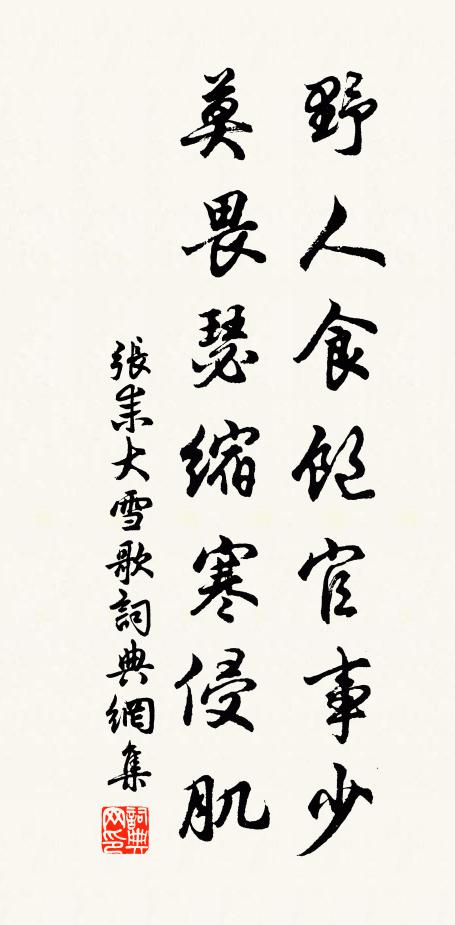 野人食飽官事少
莫畏瑟縮寒侵肌
張耒大雪歌詞典網集
詞典網印